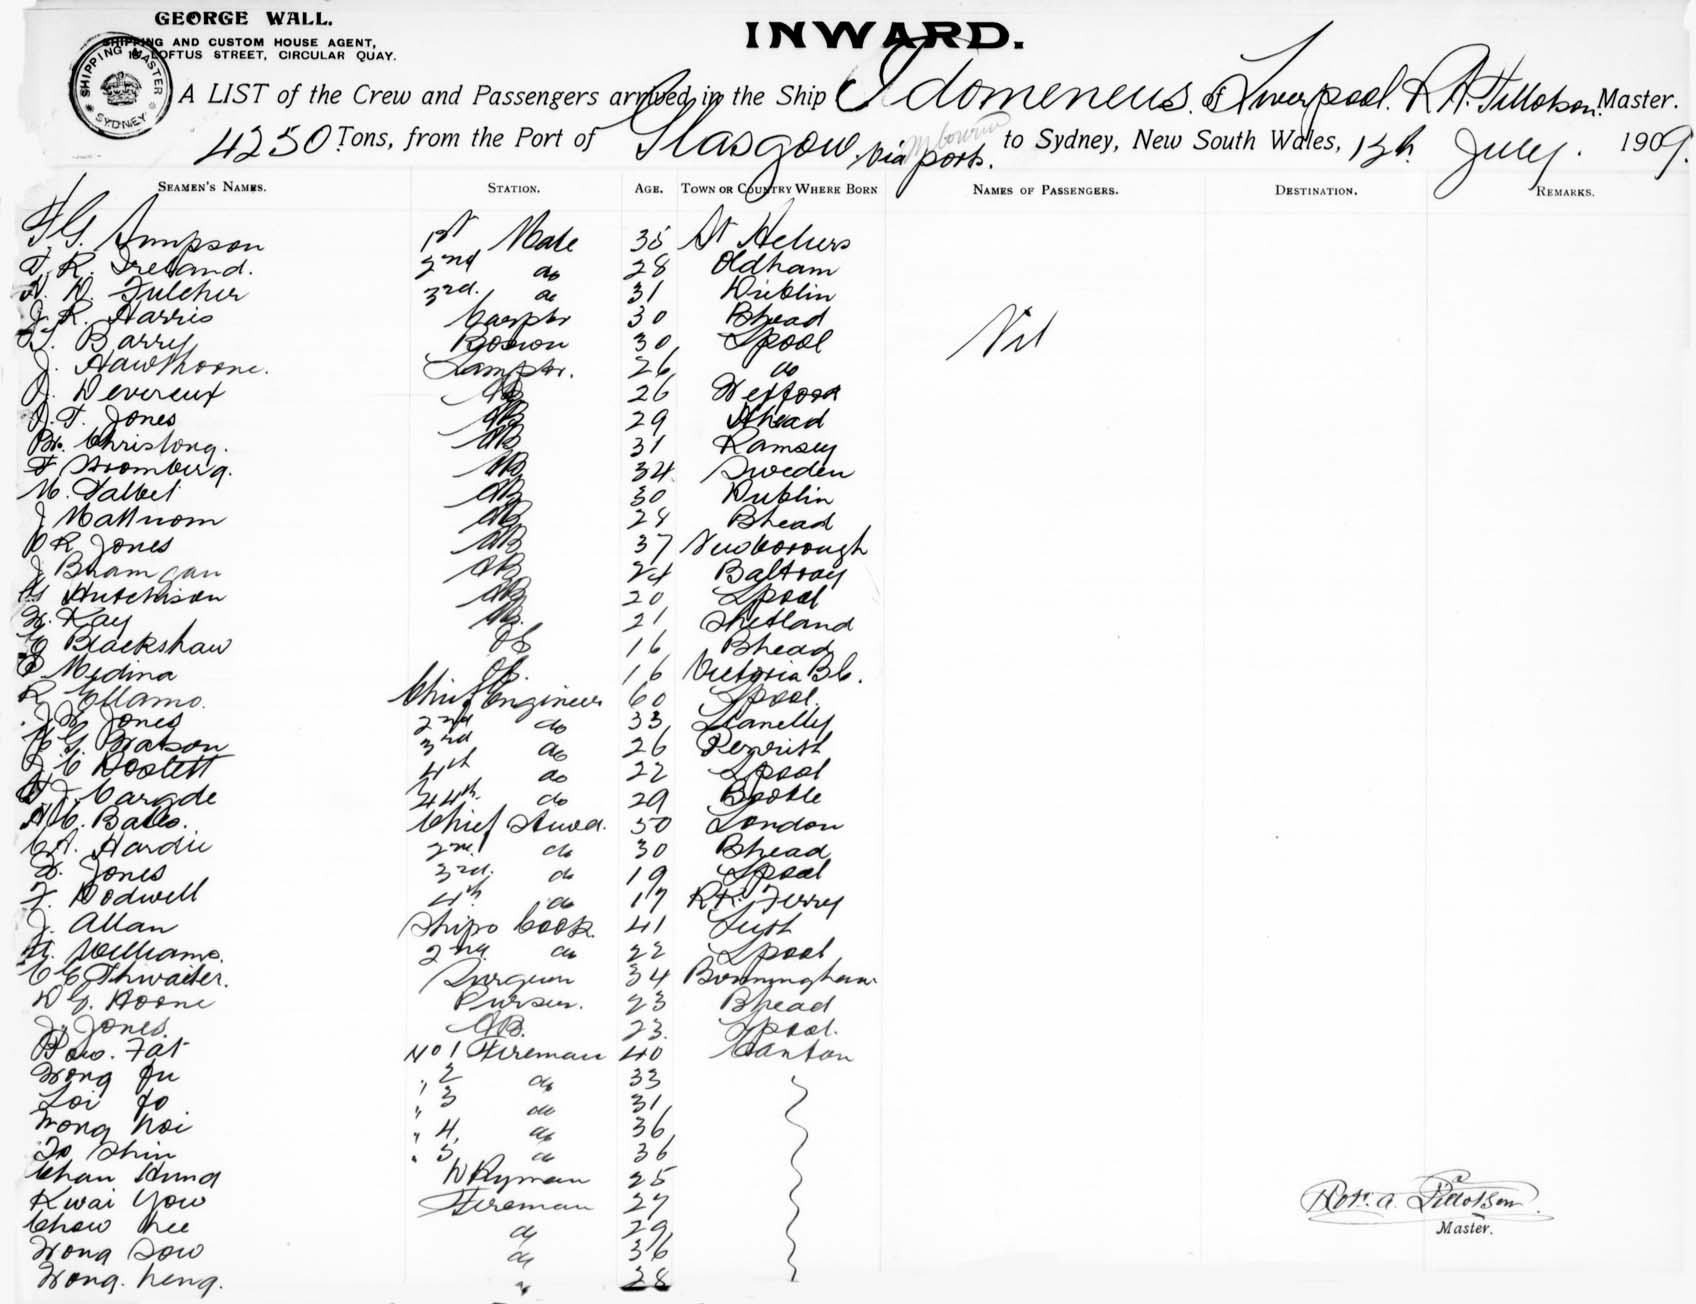 GEORGE WALL.
SHIPPING AND CUSTOM HOUSE AGENT,
LOFTUS STREET, CIRCULAR QUAY.
SHIPPING MASTER SYDNEY
INWARD.
A LIST of the Crew and Passengers arrived in the Ship Idomeneus. of Liverpool. R. A. Tillotson. Master.
4250 Tons, from the Port of Glasgow via ports. to Sydney, New South Wales, 12th July. 1909.
SEAMEN'S NAMES. STATION. AGE. TOWN OR COUNTRY WHERE BORN NAMES OF PASSENGERS. DESTINATION. REMARKS.
F. G. Simpson 1st Mate 35 St Heliers
R. Ireland. 2nd do 28 Oldham
Fulcher 3rd. do 31 Dublin
J. R. Harris Carptr 30 Bhead
Nil
T. Barry Boson 30 Lpool
J. Hawthorne. Lamptr. 26 do
J. Devereux AB 26 Wexford
J. T. Jones AB 29 Ahead
Wm. Christong. AB 31 Ramsey
F Stromberg. AB 34 Sweden
M. Talbot AB 30 Dublin
J AB 28 Bhead
R Jones AB 37 Newborough
J AB 24 Baltray
Hutchison AB 20 Lpool
W. Kay AB. 21 Shetland
C Blackshaw OS 16 Bhead
E Medina OS. 16 Victoria B.C.
R Ellams. Chief Engineer 60 Lpool.
J. Jones 2nd do 33 Llanelly
G. Watson 3rd do 26 Penrith
J C 4th do 22 Lpool
J. 44th. do 29 Bootle
Chief Stewd. 50 London
C A. Hardie 2nd do 30 Bhead
W. Jones 3rd. do 19 Lpool
F. Dodwell 4th do 17 Rk. Ferry
J. Allan Ships Cook. 41 Leith
H. Williams. 2nd do 22 Lpool
C C Thwaites. Surgeon 34 Birmingham
D G. Hoone Purser. 23 Bhead
J. Jones. AB. 23. Lpool.
Fat No 1 Fireman 40 Canton
Wong Fu " 2 do 33
Loi Fo " 3 do 31
Wong Hoi " 4. do 36
To Shin " 5 do 36
Chan Hund Dkyman 25
Kwai Yow Fireman 27
Chow Hee do 29
Wong Sow do 36
Wong. Heng. " 28
Robt. A. Tillotson.
Master.